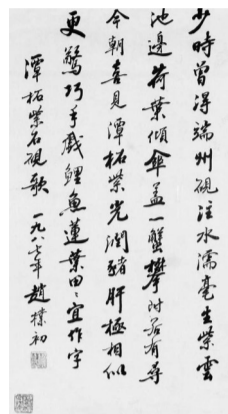 少时曾得端州砚注水濡毫生紫雲
池邊荷葉傾傘盖一蟹攀附若有尋
今朝喜見潭柘紫光潤豬肝極相似
更驚巧手戲鯉魚蓮葉田〻宜作字
潭柘紫石硯歌 一九八七年 趙樸初